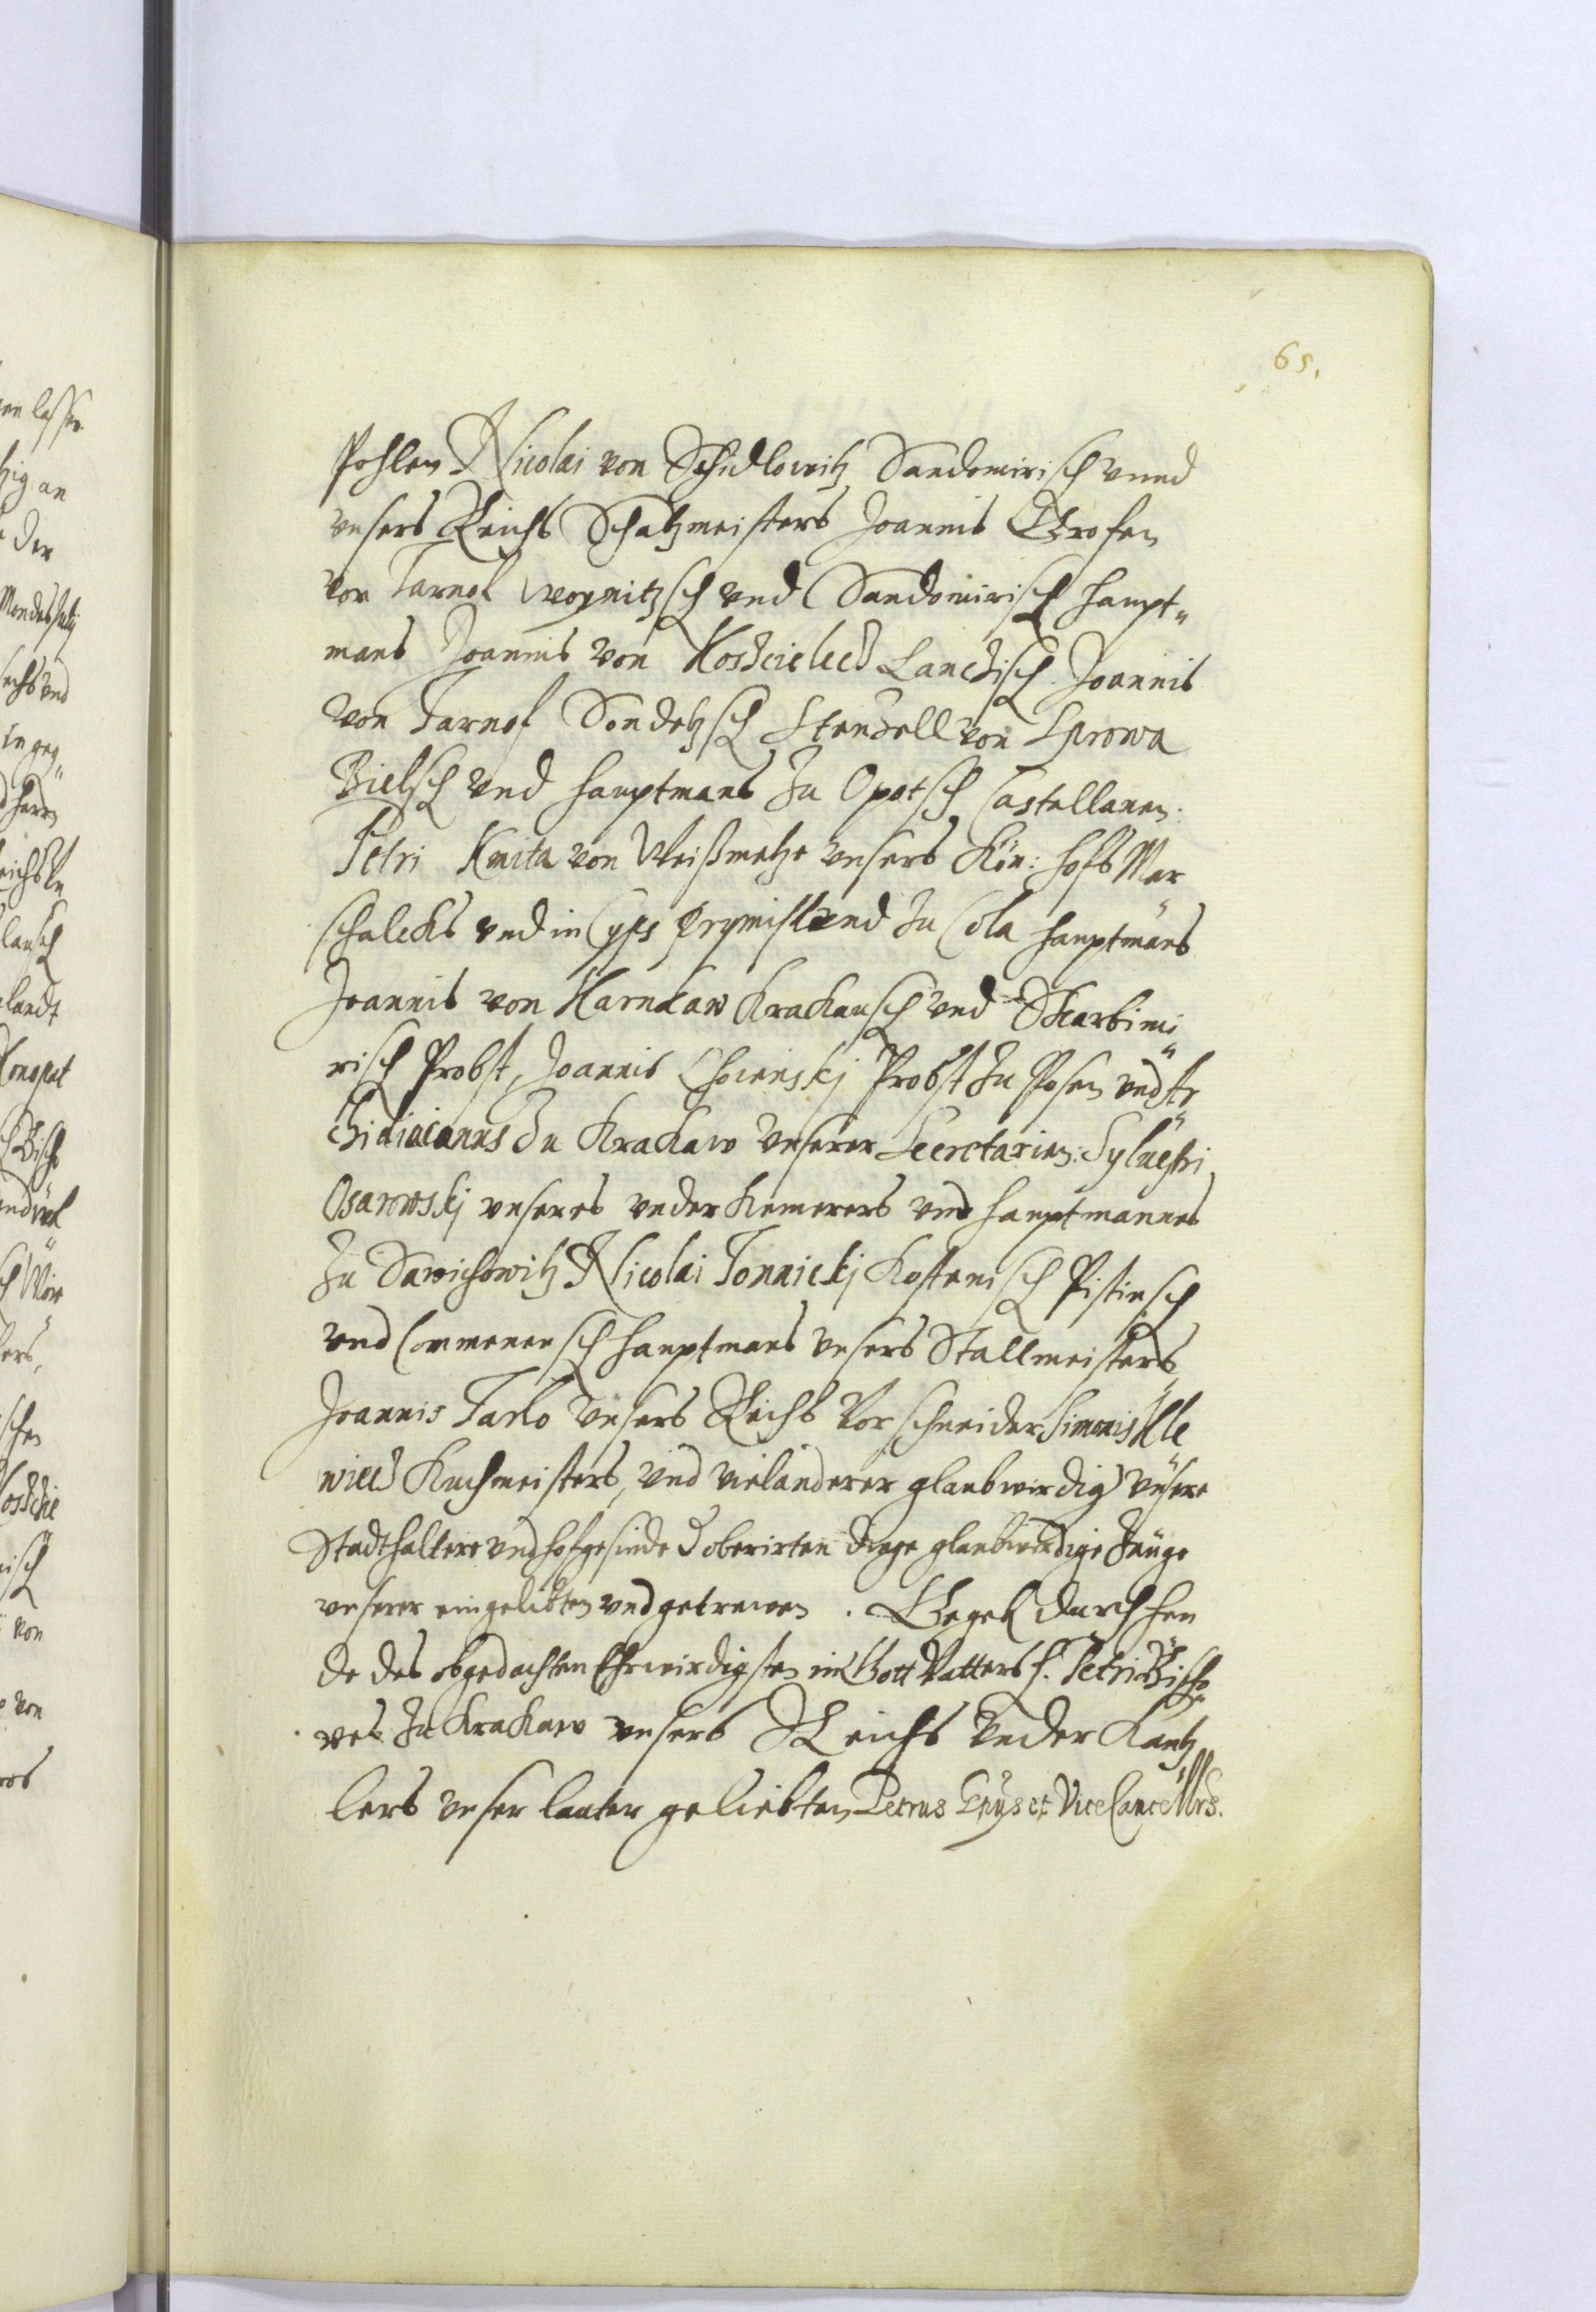 65.
Pohlen Nicolai von Schidlowitz Sandomirisch vnnd
vnsers Reichs Schatzmeisters Joannis Grofen
von Tarnof woynitzsch vnd Sandomirisch haupt„
mans Joannis von Koscielecz Lanczisch. Joannis
von Tarnof Sondetzsch Stenzell von Sprowa
Bielsch vnd hauptmans zu Opotsch Castellanen:
Petri Kmita von Weißmetze vnsers Kön: hofs Mar„
schalcks vnd in Cyps Prymisl vnd zu Cola hauptmans
Joannis von Karnkaw Krakausch vnd Skarbimi„
risch Probst, Joannis Choienskj Probst zu Posen vnd Ar„
chidiaconus zu Krakaw vnserer Secretarien: Syluestri
Osarowskj vnseres vnder Kemerers vnd hauptmannes
zu Sawichowitz Nicolai Tomickj Kostenisch Pistinsch
vnd Commenensch hauptmans vnsers Stallmeisters
Joannis Tarlo vnsers Reichs Vorschneider Simonis Ile„
niecz Kuchmeisters, vnd viel anderer glaubwirdig vnsere
Stadthaltere vnd hofgesinde d oberirten dinge glaubwirdige Zeuge
vnserer eingeliebten vnd getrewen. Gegeb durch hen
de des obgedachten Ehrwirdigsten in Gott Vatters h. Petri Bischo„
ves zu Krakaw vnsers Reichs vnder Kantz„
lers vnser lauter geliebten Petrus Epus et ViceCancellrs.